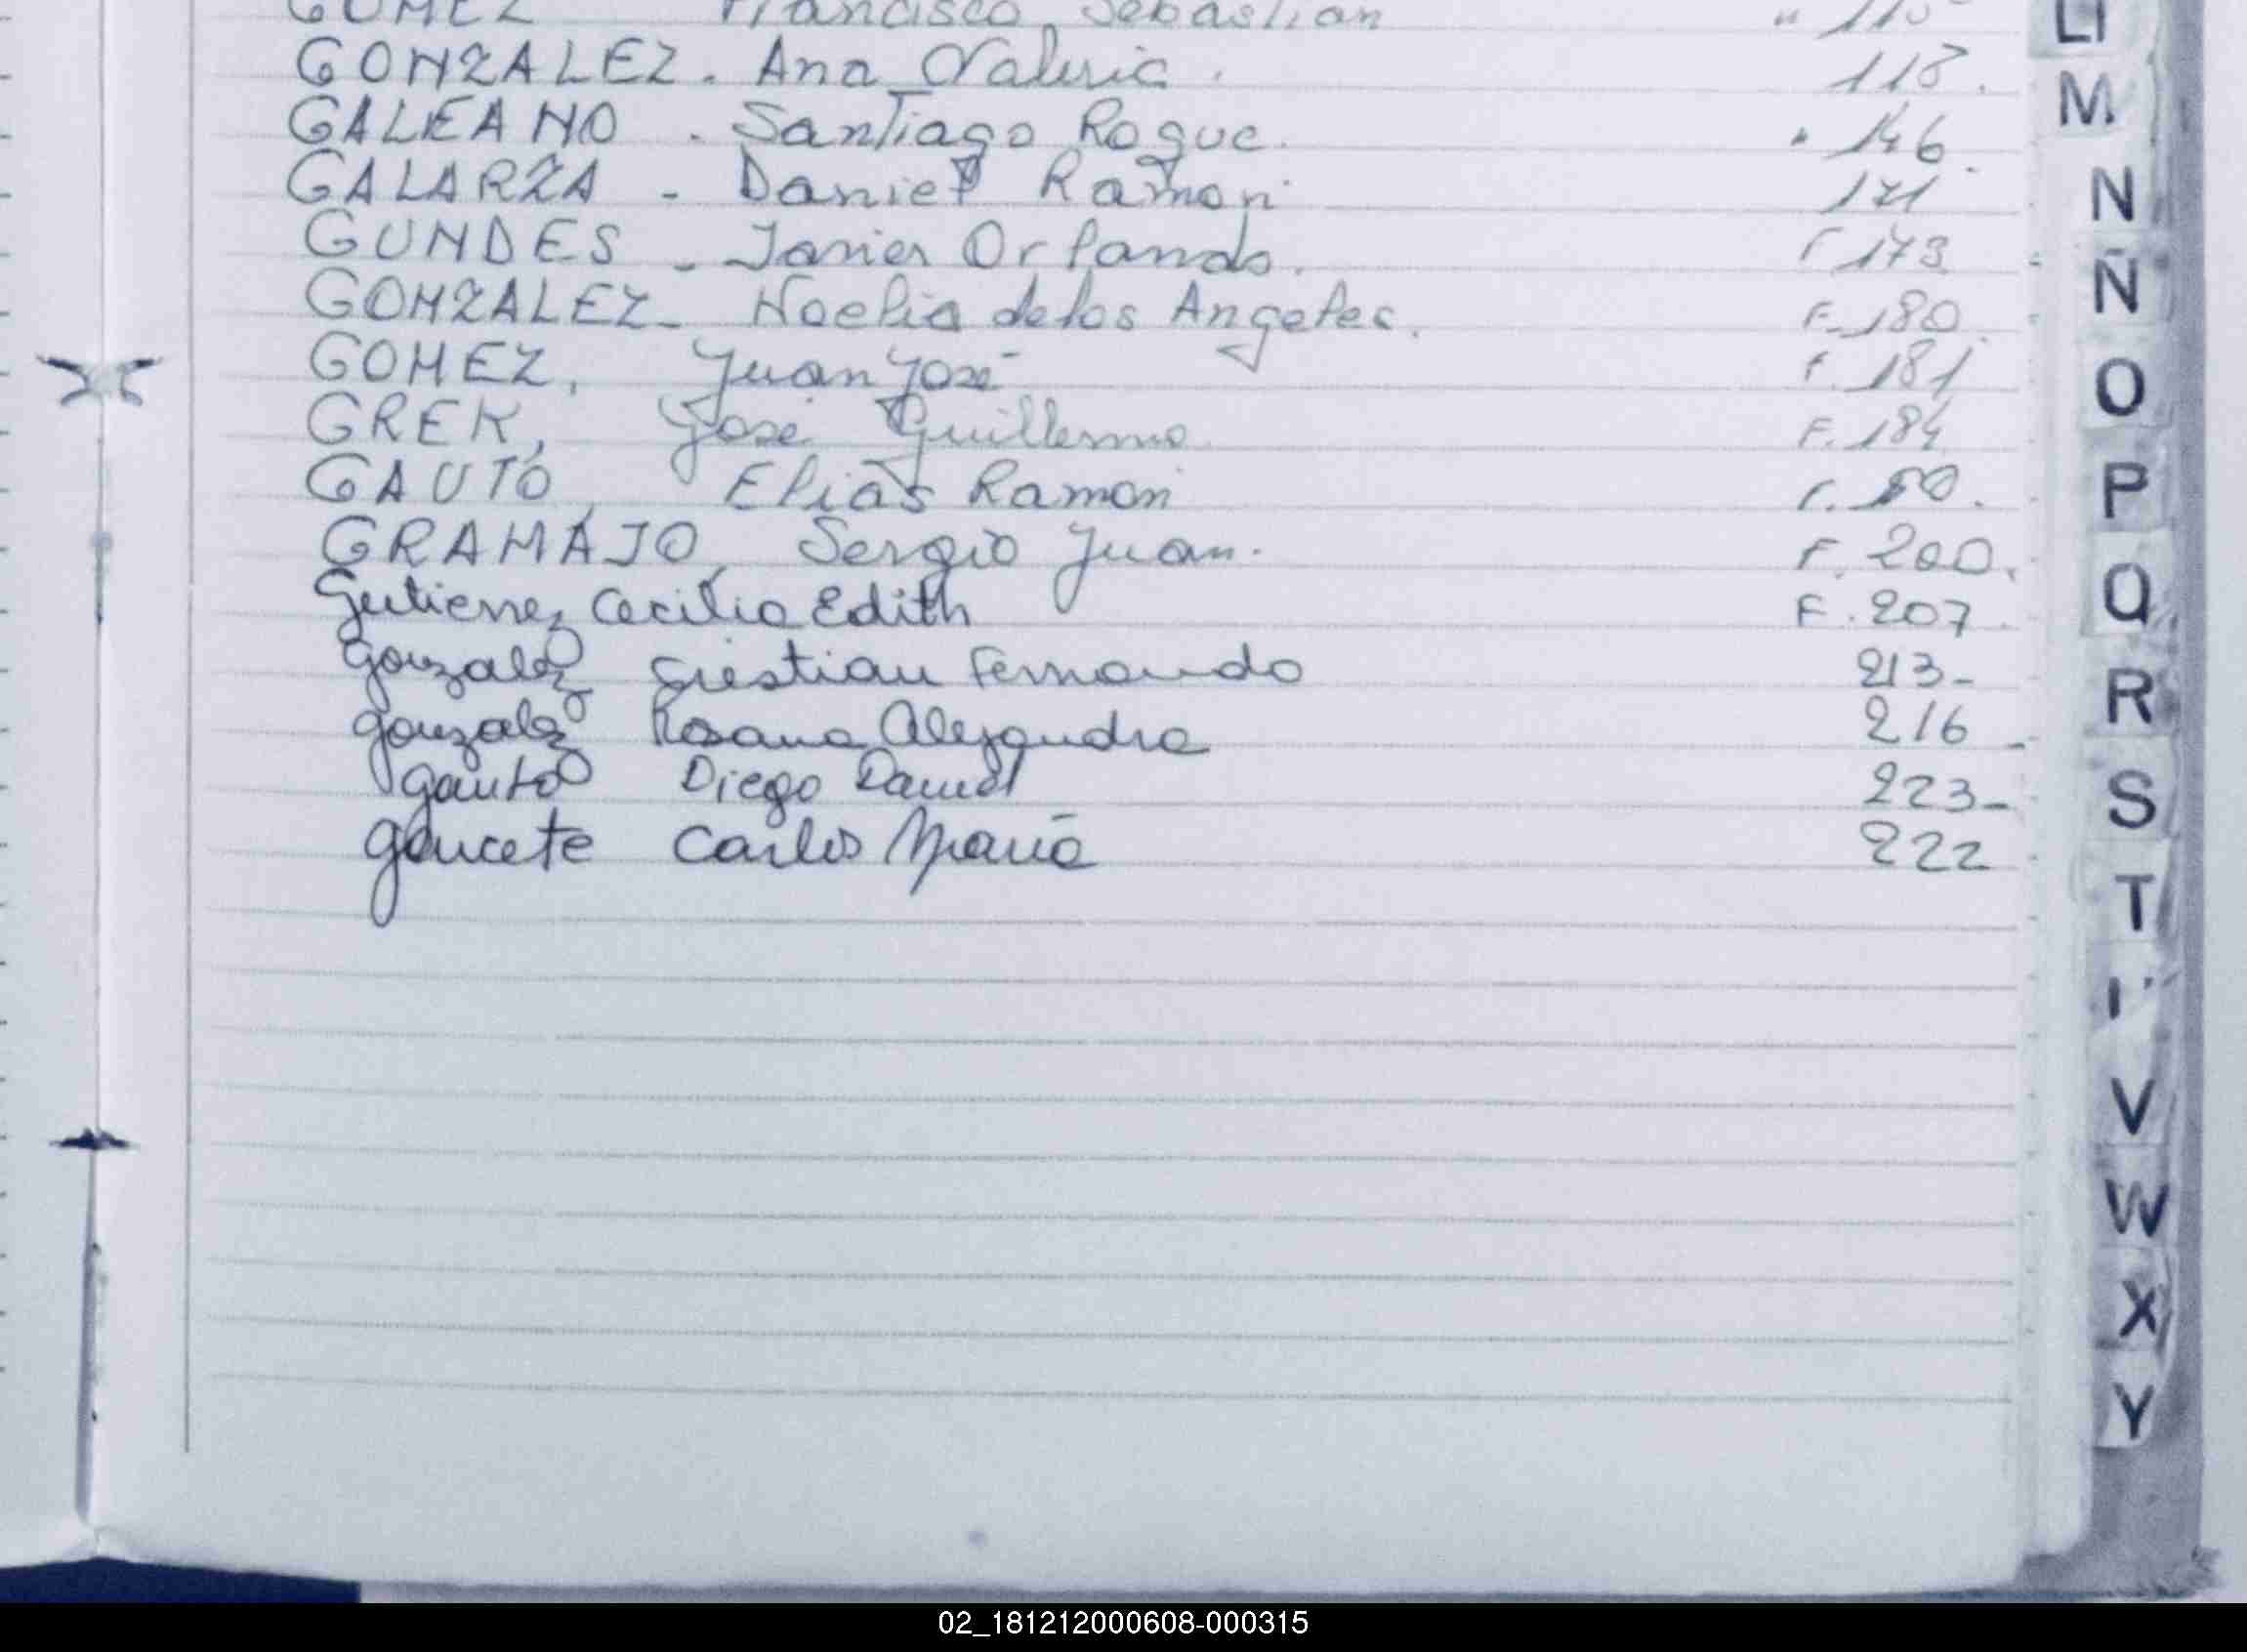 GOMEZ Francisco Sebastian " 115
GONZALEZ. Ana Valeria. 118.
GALEANO - Santiago Roque. " 146.
GALARZA - Daniel Ramon 171
GUNDES - Javier Orlando. F 173
GONZALEZ - Noelia de los Angeles. F. 180.
GOMEZ, Juan José F. 181
GREK, José Guillermo F. 184
GAUTO, Elias Ramon F. 80.
GRAMAJO, Sergio Juan. F. 200.
Gutierrez Cecilia Edith F. 207.
Gonzalez Cristian Fernando 213-
Gonzalez Rosana Alejandra 216-
Gauto Diego Daniel 223-
Gaucete Carlos María 222
Ll
M
N
Ñ
O
P
Q
R
S
T
V
W
X
Y
02_181212000608-000315